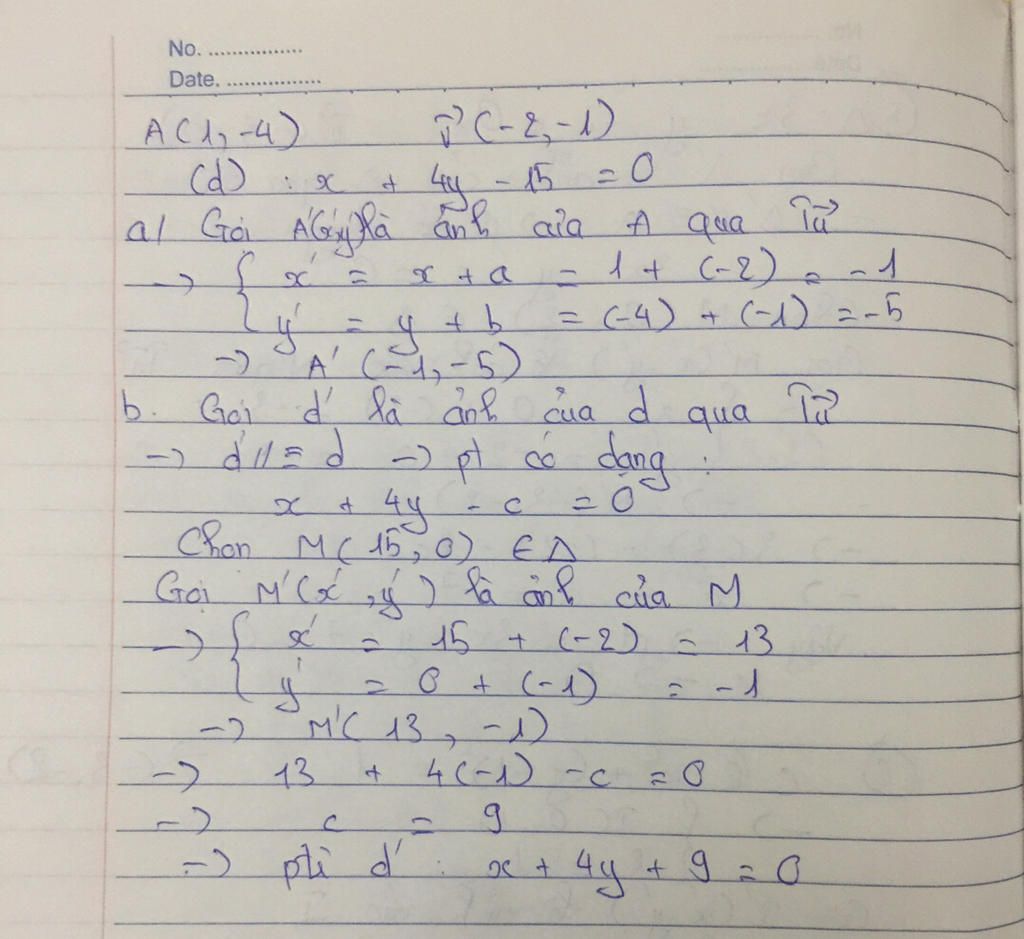 No. ................
Date. ................
A(1,-4) v⃗(-2,-1)
(d) : x + 4y - 15 = 0
a/ Gọi A'(x',y') là ảnh của A qua Tu⃗
→ { x' = x + a = 1 + (-2) = -1
y' = y + b = (-4) + (-1) = -5
→ A' (-1,-5)
b. Gọi d' là ảnh của d qua Tu⃗
→ d' // ≡ d → pt có dạng :
x + 4y - c = 0
Chọn M( 15, 0) ∈ Δ
Gọi M'(x', y') là ảnh của M
→ { x' = 15 + (-2) = 13
y' = 0 + (-1) = -1
→ M'( 13, -1)
→ 13 + 4(-1) - c = 0
→ c = 9
→ ptđt d' : x + 4y + 9 = 0